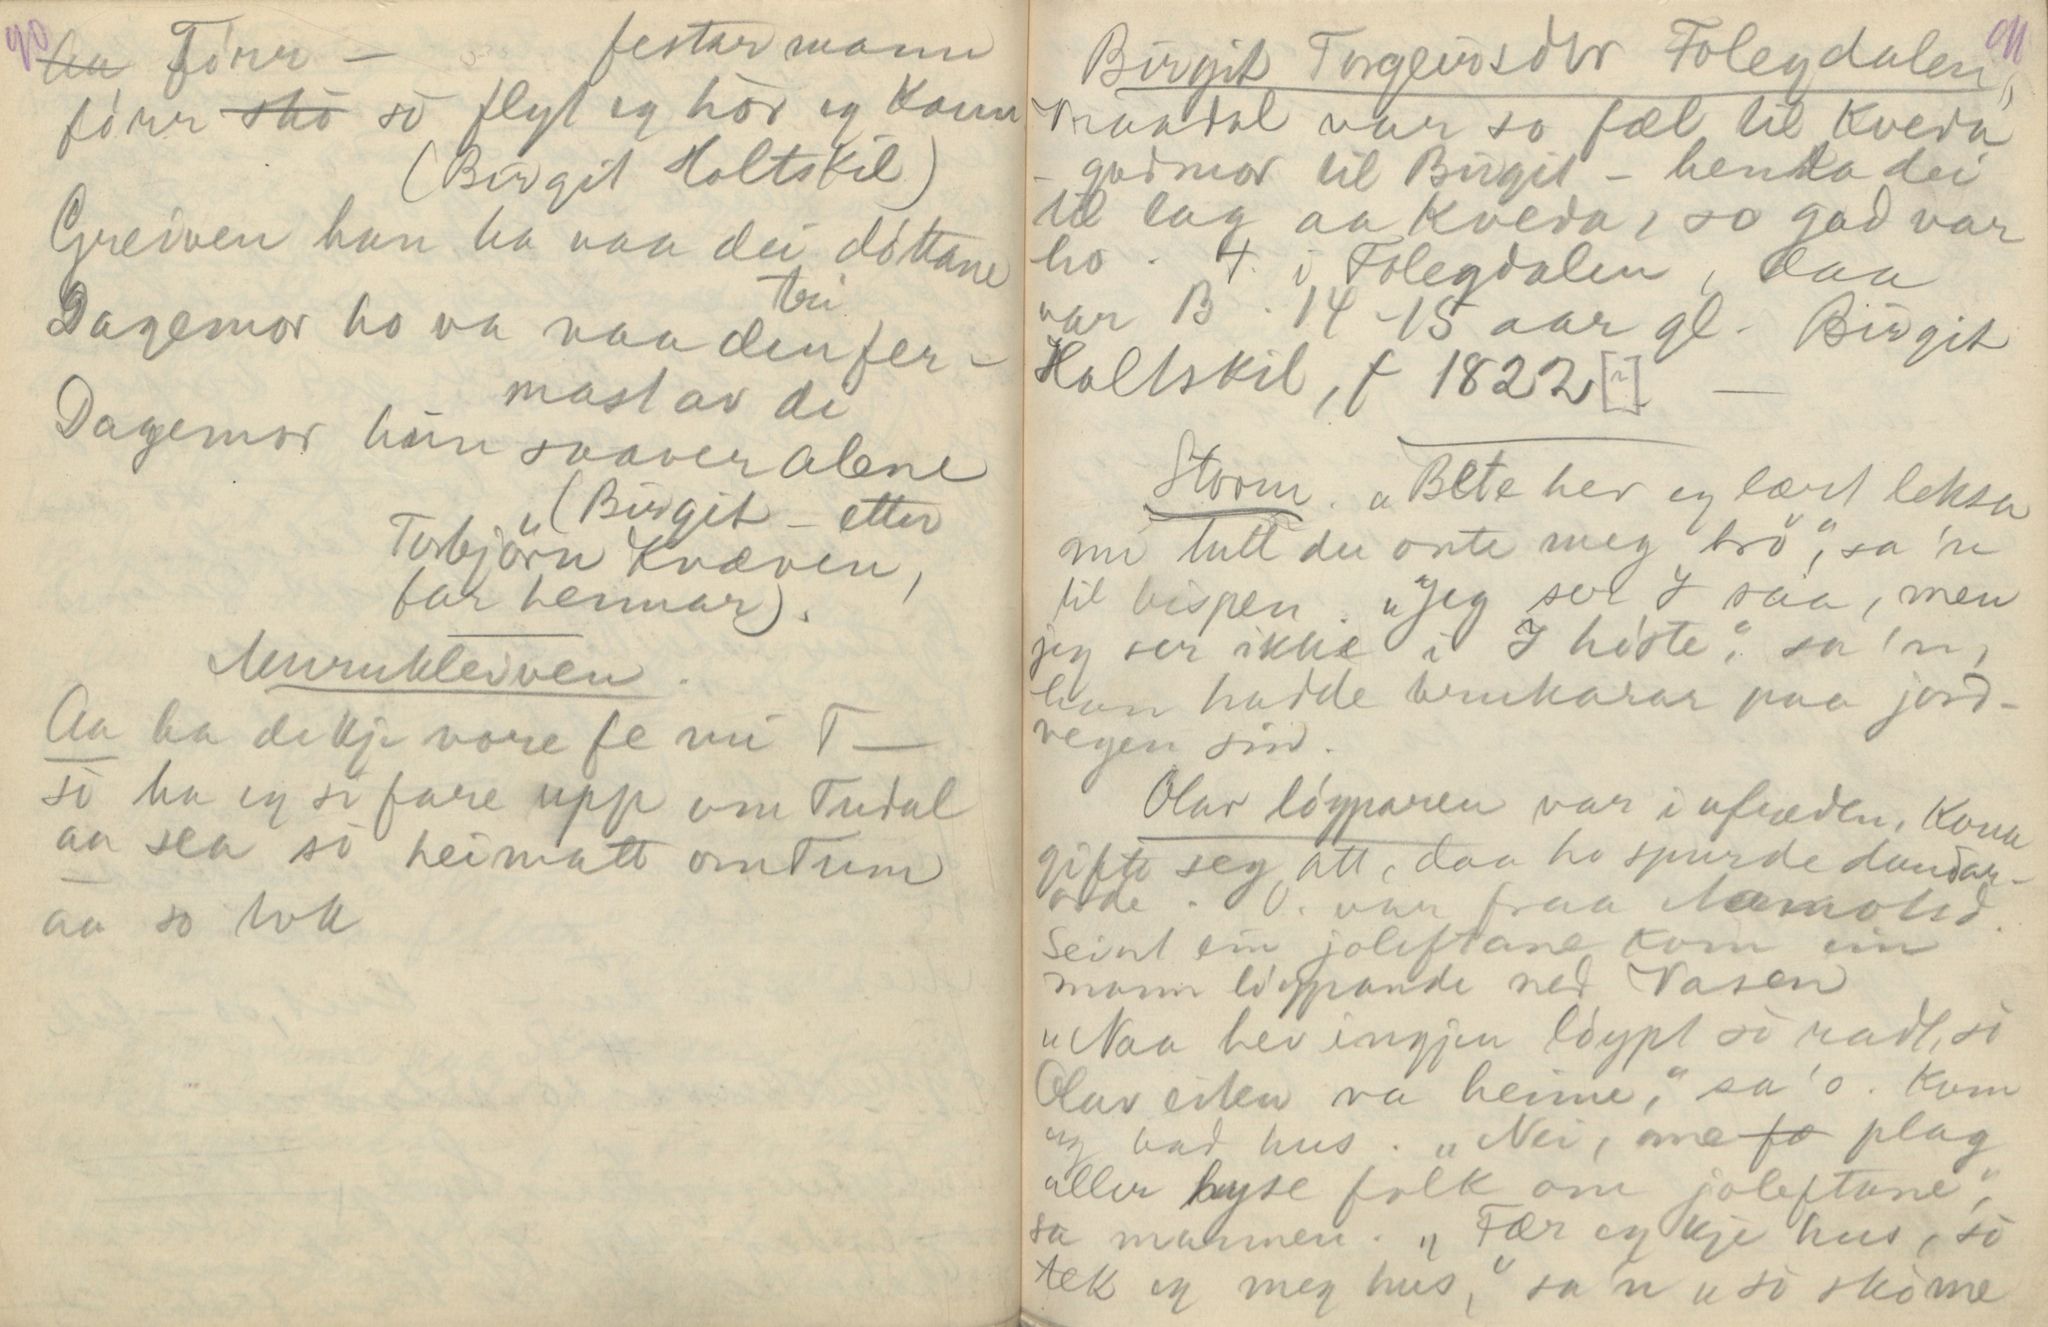 90
ha Fórr — festarmann
fórr skò sò flyt eg hòr eg kann
(Birgit Holtskil)
Greiven han ha vaa dei dóttane
tri
Dagemor ho va vaa den fer-
mast av di
Dagemor hun saaver alene
(Birgit – etter
Torbjörn Kvæven,
far hennar).
Murukleiven.
Aa ha de kje vore fe mi T —
sò ha eg sò fare upp um Tudal
aa sea sò heimatt om Tum
aa so tok
91
Birgit Torgeirsdtr Folegdalen,
Vraadal var so fæl til kveda
– godmor til Birgit – henta dei
til lag aa kveda, so god var
ho. † i Folegdalen, daa
var B. 14-15 aar gl. Birgit
Holtskil, f 1822 [?] —
Storm. „Bete hev eg lært leksa
mi tutt du onte meg brö", sa 'n
til bispen. „Jeg ser I saa, men
jeg ser ikke i I höste," sa 'n,
han hadde brukarar paa jord-
vegen sin.
Olav lóyparen var i ufreden, kona
gifte seg att, daa ho spurde daudar-
orde. O. var fraa
Seint ein joleftane kom ein
mann lóypande ned Vasen
„Naa hev ingjen lóypt sò radt, sò
Olav eiten va heime," sa 'o. Kom
og bad hus. „Nei, me fo plag
aller hyse folk om joleftane",
sa mannen. „Fær eg kje hus, sò
tek eg meg hus," sa 'n „sò skò me